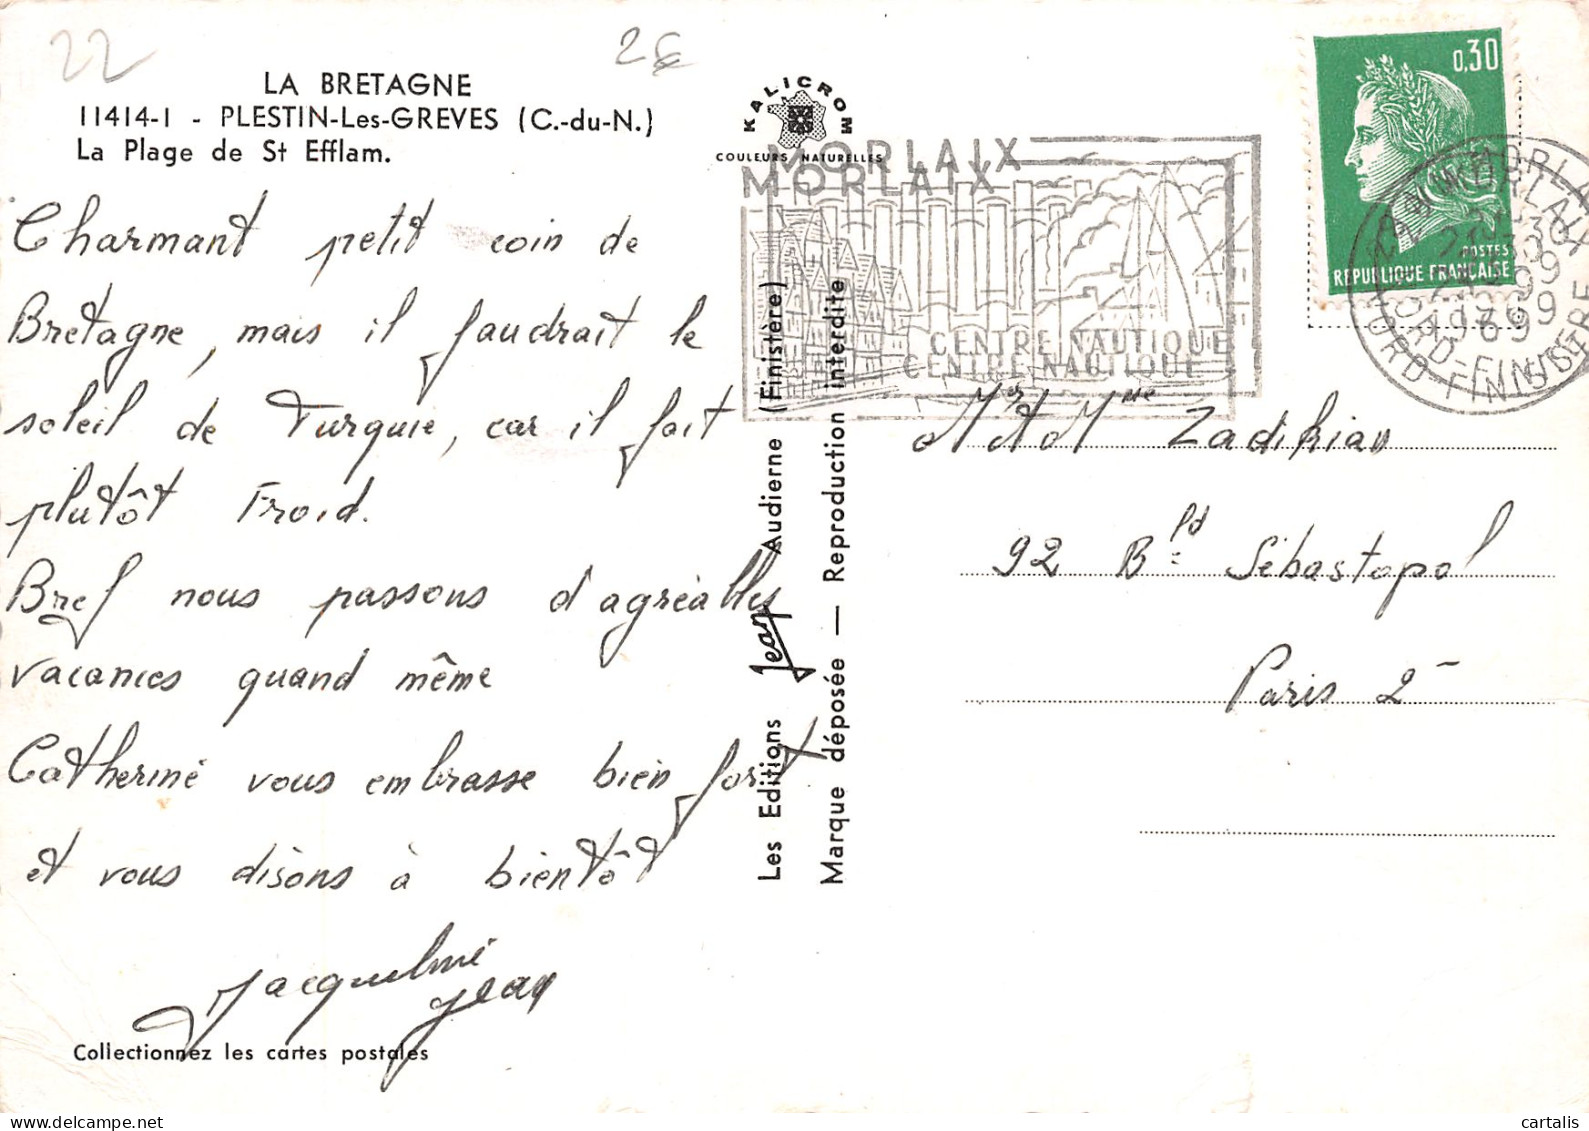 22
2€
LA BRETAGNE
11414-1 - PLESTIN-Les-GREVES (C.-du-N.)
La Plage de St Efflam.
Charmant petit coin de
Bretagne, mais il faudrait le
soleil de Turquie, car il fait
plutôt Froid.
Bref nous passons d'agréables
vacances quand même
Catherine vous embrasse bien fort
et vous disons à bientôt
Jacqueline
Jean
Collectionnez les cartes postales
KALICROM
COULEURS NATURELLES
MORLAIX
MORLAIX
CENTRE NAUTIQUE
CENTRE NAUTIQUE
Les Editions Jean Audierne (Finistère)
Marque déposée — Reproduction interdite
0,30
POSTES
REPUBLIQUE FRANÇAISE
MORLAIX
1969
NORD-FINISTERE
Mr et Mme Zadikian
92 Bld Sébastopol
Paris 2
cartalis